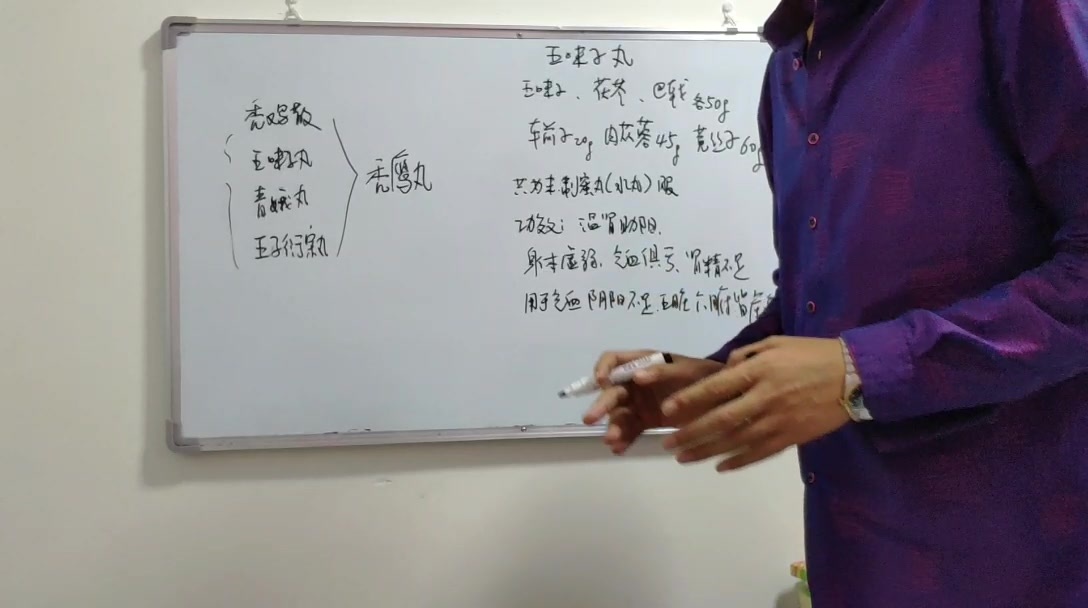 秃鸡散
五味子丸
青娥丸
五子衍宗丸
秃鹰丸
五味子丸
五味子、茯苓、巴戟 各50g
车前子20g 肉苁蓉45g 菟丝子60g
共为末制蜜丸(水丸)服
功效：温肾助阳.
身体虚弱、气血俱亏、肾精不足
用于气血阴阳不足.五脏六腑皆虚